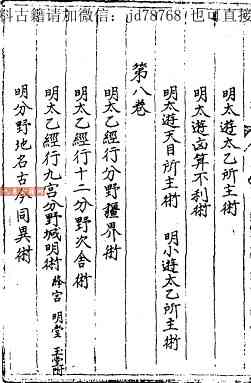 料古籍请加微信：jd78768 也可直接
明太遊太乙所主術
明太遊凶算不利術
明太遊天目所主術　明小遊太乙所主術
第八卷
明太乙經行分野疆界術
明太乙經行十二分野次舍術
明太乙經行九宮分野城明術 絳宮 明堂
明分野地名古今同異術